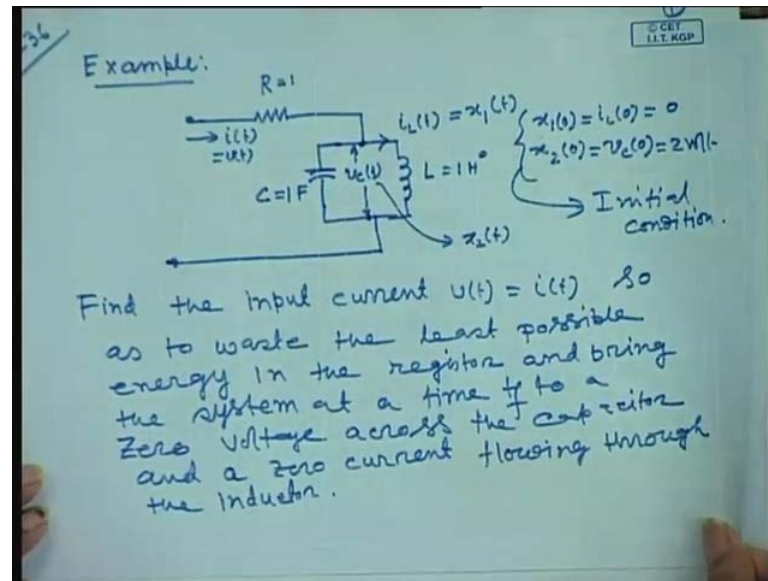 36
© CET
I.I.T. KGP
Example:
R=1
i(t)
=u(t)
i_L(t) = x_1(t)
C=1F
v_c(t)
L=1H
x_2(t)
x_1(0)=i_L(0)=0
x_2(0)=v_c(0)=2
Initial
condition.
Find the input current u(t) = i(t) so
as to waste the least possible
energy in the registor and bring
the system at a time t_f to a
zero voltage across the capacitor
and a zero current flowing through
the inductor.